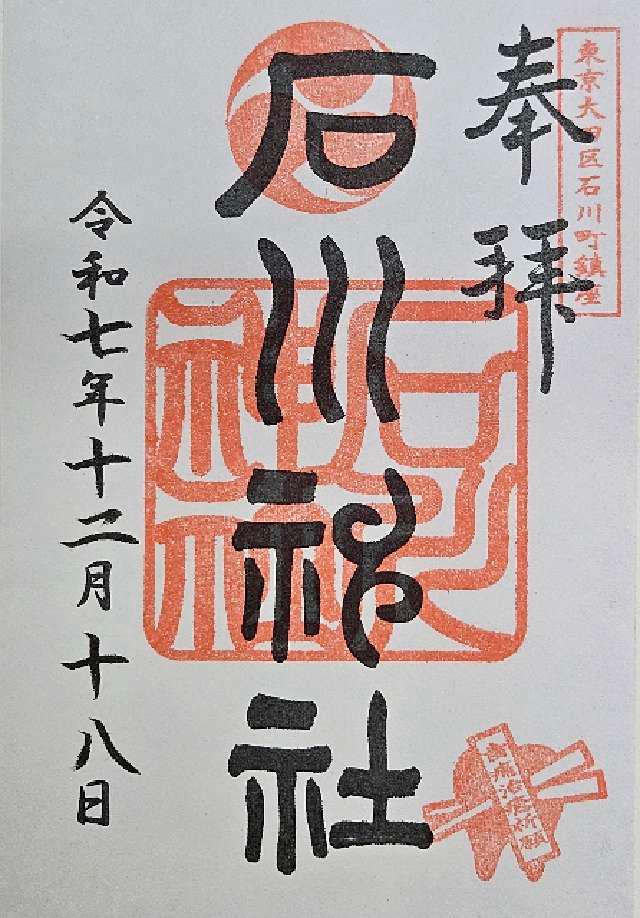 東京大田区石川町鎮座
奉拝
石川神社
石川神社
令和七年十二月十八日